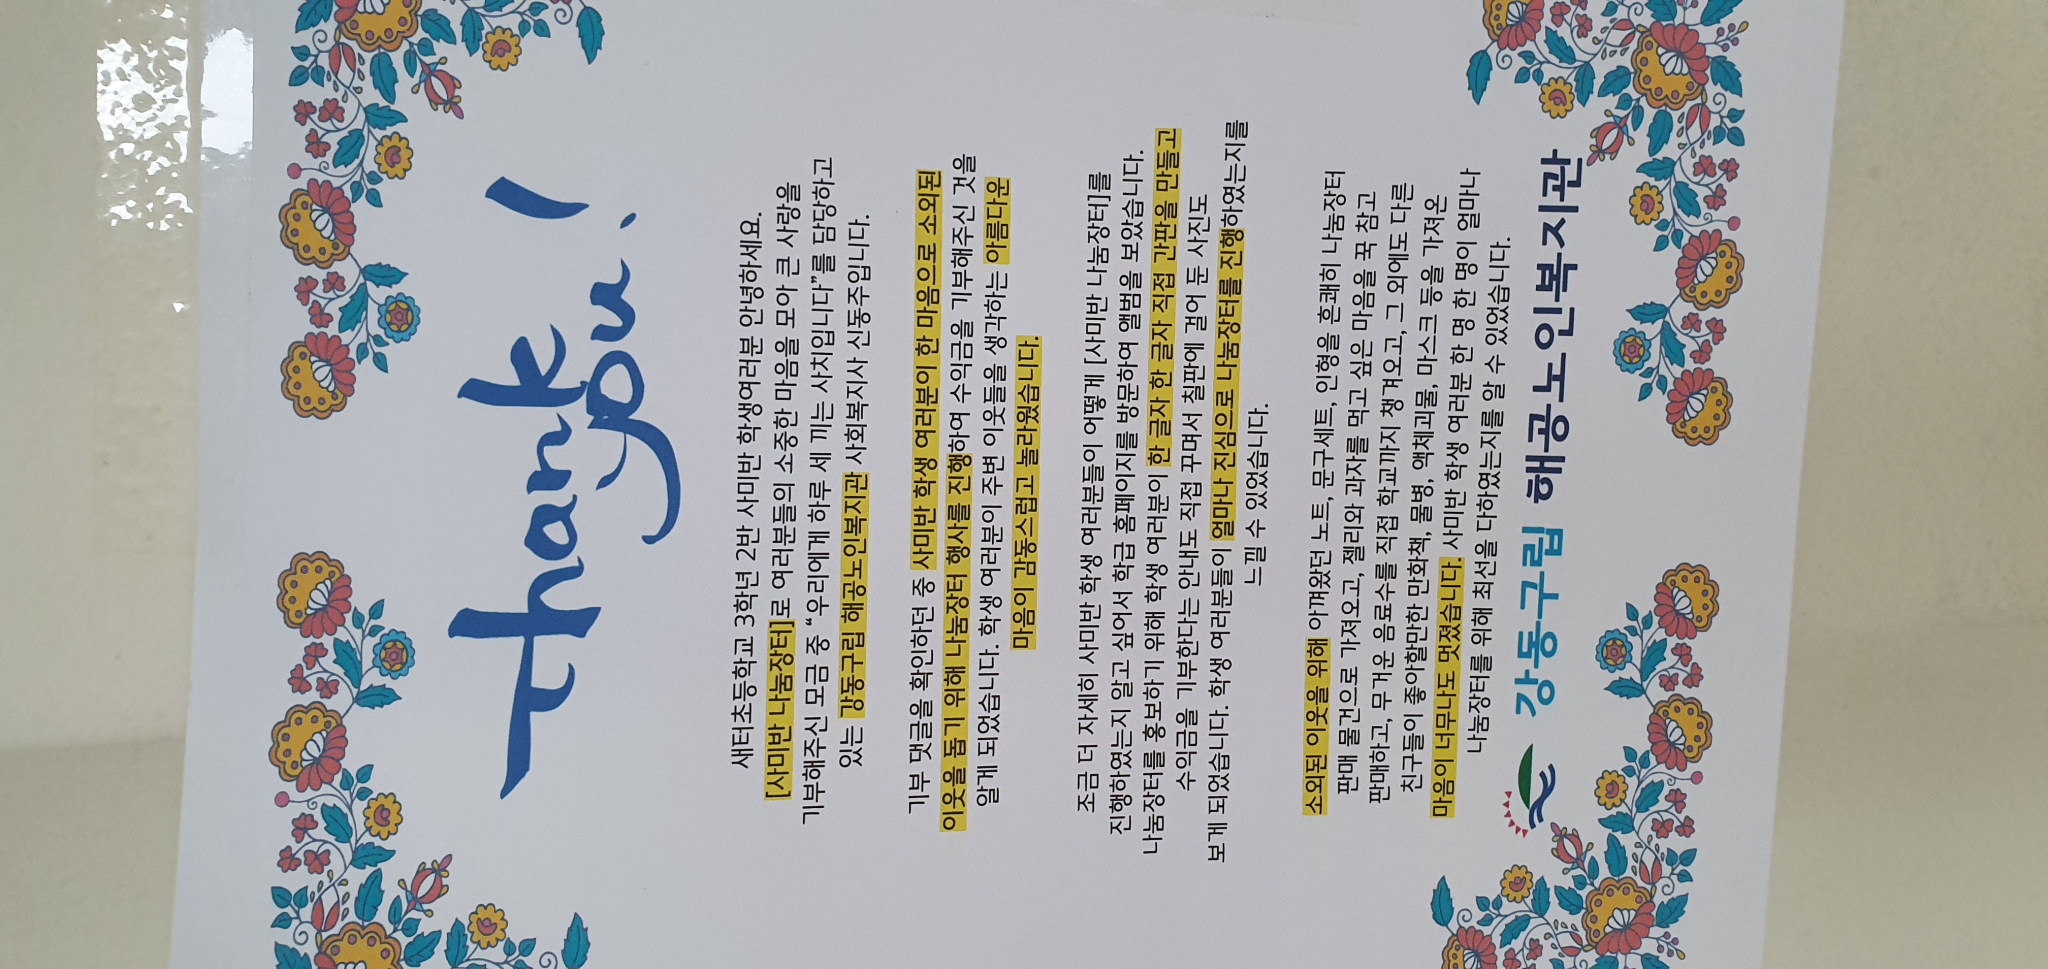 Thank
you!
새터초등학교 3학년 2반 사미반 학생여러분 안녕하세요.
[사미반 나눔장터]로 여러분들의 소중한 마음을 모아 큰 사랑을
기부해주신 모금 중 “우리에게 하루 세 끼는 사치입니다”를 담당하고
있는 강동구립 해공노인복지관 사회복지사 신동주입니다.
기부 댓글을 확인하던 중 사미반 학생 여러분이 한 마음으로 소외된
이웃을 돕기 위해 나눔장터 행사를 진행하여 수익금을 기부해주신 것을
알게 되었습니다. 학생 여러분이 주변 이웃들을 생각하는 아름다운
마음이 감동스럽고 놀라웠습니다.
조금 더 자세히 사미반 학생 여러분들이 어떻게 [사미반 나눔장터]를
진행하였는지 알고 싶어서 학급 홈페이지를 방문하여 앨범을 보았습니다.
나눔장터를 홍보하기 위해 학생 여러분이 한 글자 한 글자 직접 간판을 만들고
수익금을 기부한다는 안내도 직접 꾸며서 칠판에 걸어 둔 사진도
보게 되었습니다. 학생 여러분들이 얼마나 진심으로 나눔장터를 진행하였는지를
느낄 수 있었습니다.
소외된 이웃을 위해 아껴왔던 노트, 문구세트, 인형을 흔쾌히 나눔장터
판매 물건으로 가져오고, 젤리와 과자를 먹고 싶은 마음을 꾹 참고
판매하고, 무거운 음료수를 직접 학교까지 챙겨오고, 그 외에도 다른
친구들이 좋아할만한 만화책, 물병, 액체괴물, 마스크 등을 가져온
마음이 너무나도 멋졌습니다. 사미반 학생 여러분 한 명 한 명이 얼마나
나눔장터를 위해 최선을 다하였는지를 알 수 있었습니다.
강동구립 해공노인복지관